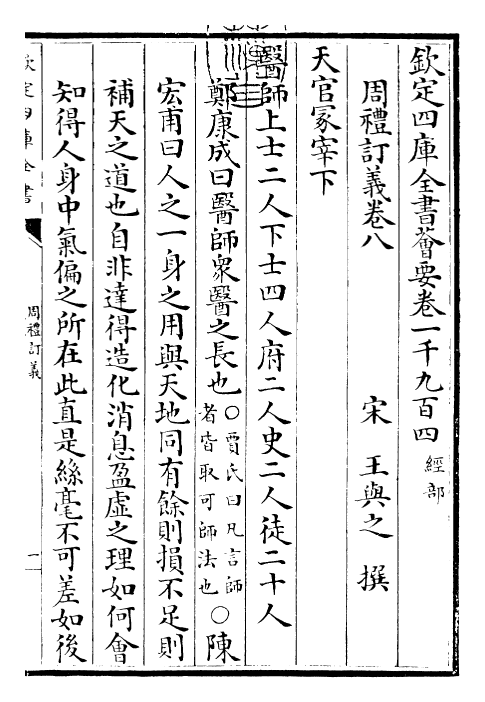 欽定四庫全書薈要卷一千九百四 經部
周禮訂義卷八 宋 王與之 撰
天官冢宰下
醫師上士二人下士四人府二人史二人徒二十人
鄭康成曰醫師衆醫之長也○賈氏曰凡言師者皆取可師法也○陳
宏甫曰人之一身之用與天地同有餘則損不足則
補天之道也自非達得造化消息盈虛之理如何會
知得人身中氣偏之所在此直是絲毫不可差如後
欽定四庫全書
周禮訂義
一